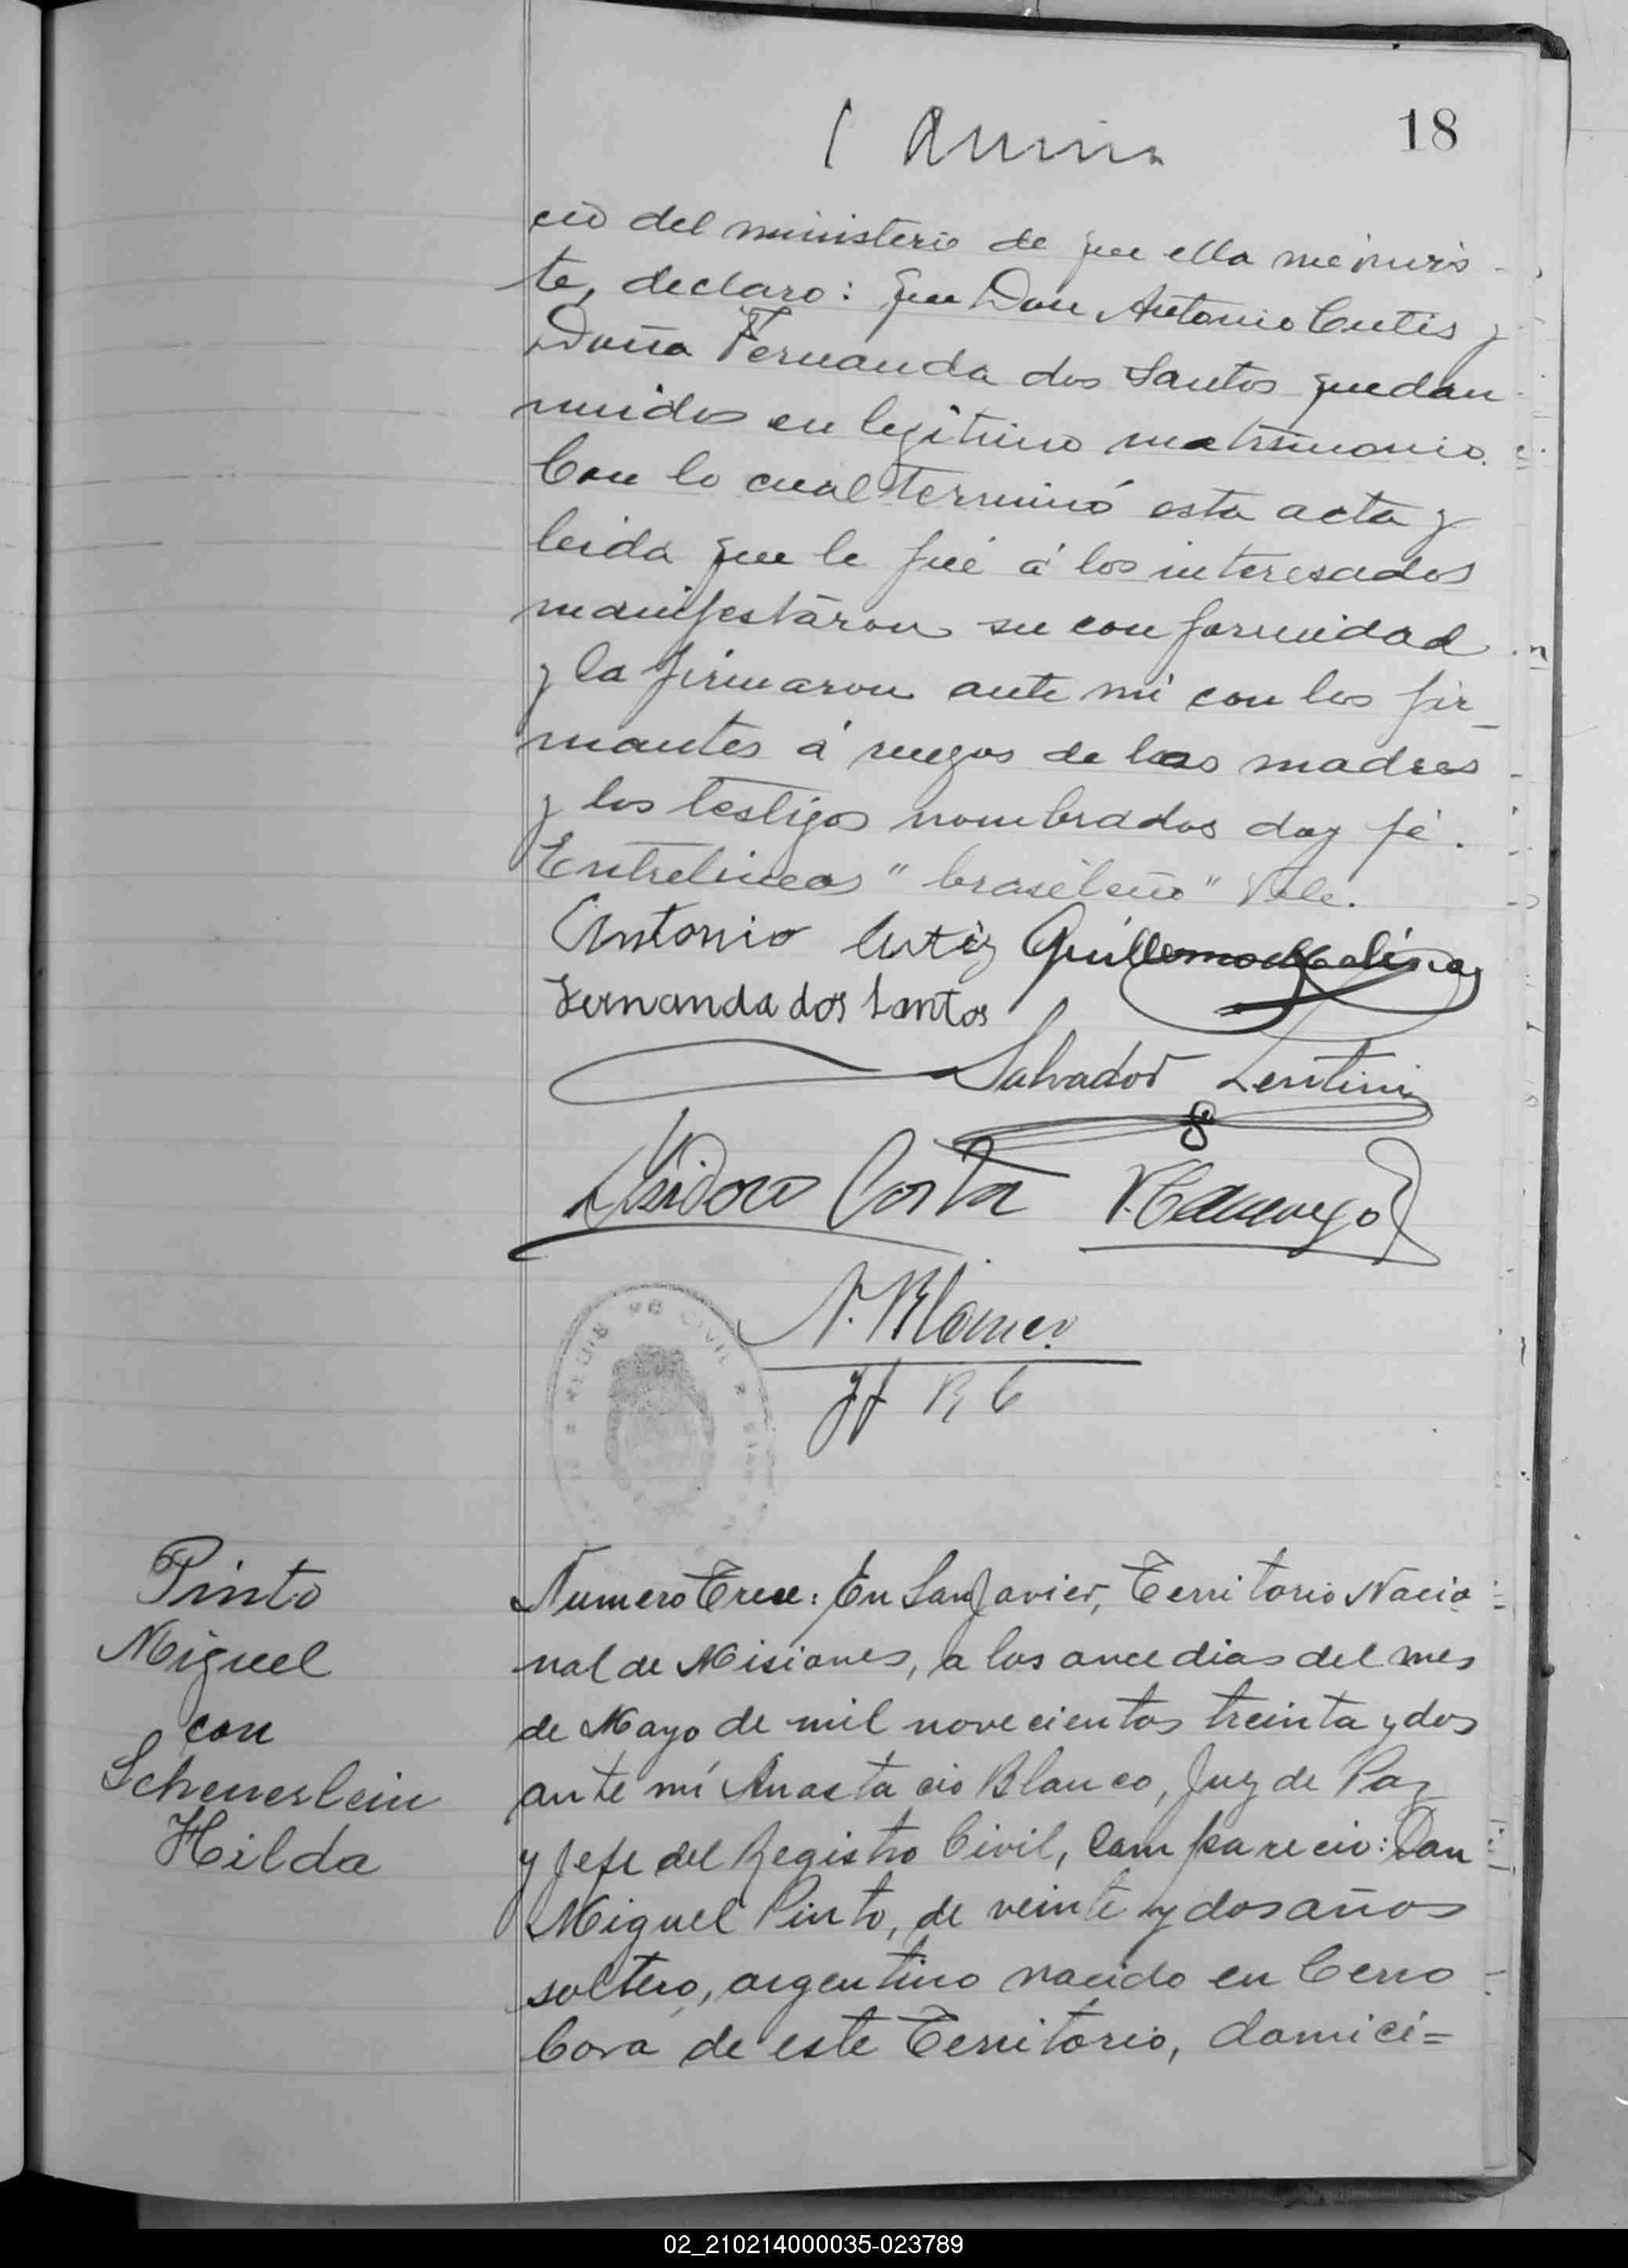 18
cio del ministerio de que ella me inviste
te, declaro: que Don Antonio Cutis y
Doña Fernanda dos Santos quedan
unidos en legitimo matrimonio.
Con lo cual terminó esta acta y
leida que le fué á los interesados
manifestáron su conformidad
y la firmaron ante mi con los fir_
mantes á ruegos de las madres
y los testigos nombrados doy fé.
Entrelineas "brasileño" Vale.
Antonio Cutiz Guillermo Molinas
Fernanda dos Santos
Salvador Lentini
Isidoro Costa
A. Blanco
Jf R C
Pinto
Miguel
con
Scheuerlein
Hilda
Numero Trece: En San Javier, Territorio Nacio=
nal de Misiones, a los once dias del mes
de Mayo de mil novecientos treinta y dos
ante mí Anastacio Blanco, Juz de Paz
y Jefe del Registro Civil, Comparecio: Don
Miguel Pinto, de veinte y dos años
soltero, argentino nacido en Cerro
Cora de este Territorio, domici=
02_210214000035-023789